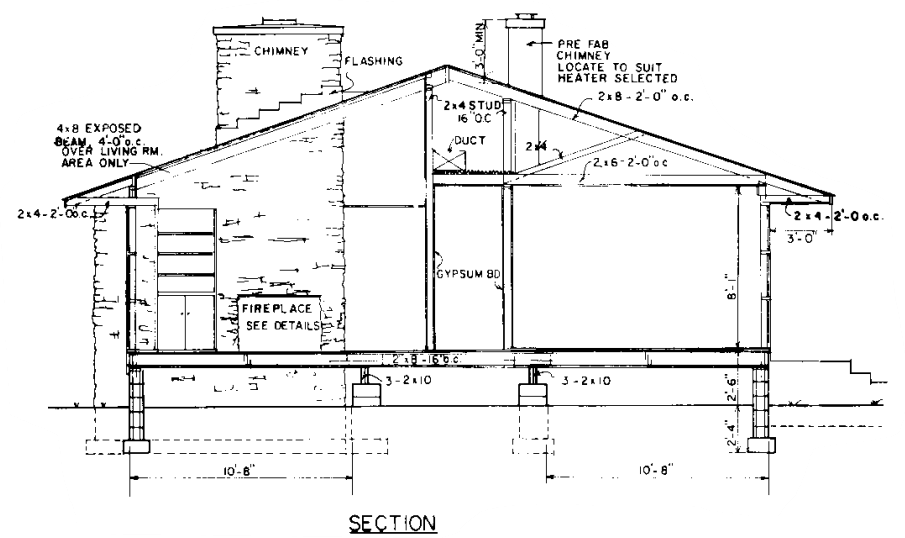 CHIMNEY
FLASHING
3'-0" MIN.
PRE FAB
CHIMNEY
LOCATE TO SUIT
HEATER SELECTED
2x8-2'-0" o.c.
2x4 STUD
16" O.C
4x8 EXPOSED
BEAM, 4'-0"o.c.
OVER LIVING RM.
AREA ONLY
DUCT
2x4
2x6-2'-0"o.c
2x4-2'-0o.c.
2x4-2'-0o.c.
3'-0"
GYPSUM BD
8'-1"
FIREPLACE
SEE DETAILS
2x8-16"o.c.
3-2x10
3-2x10
2'-6"
2'-4"
10'-8"
10'-8"
SECTION